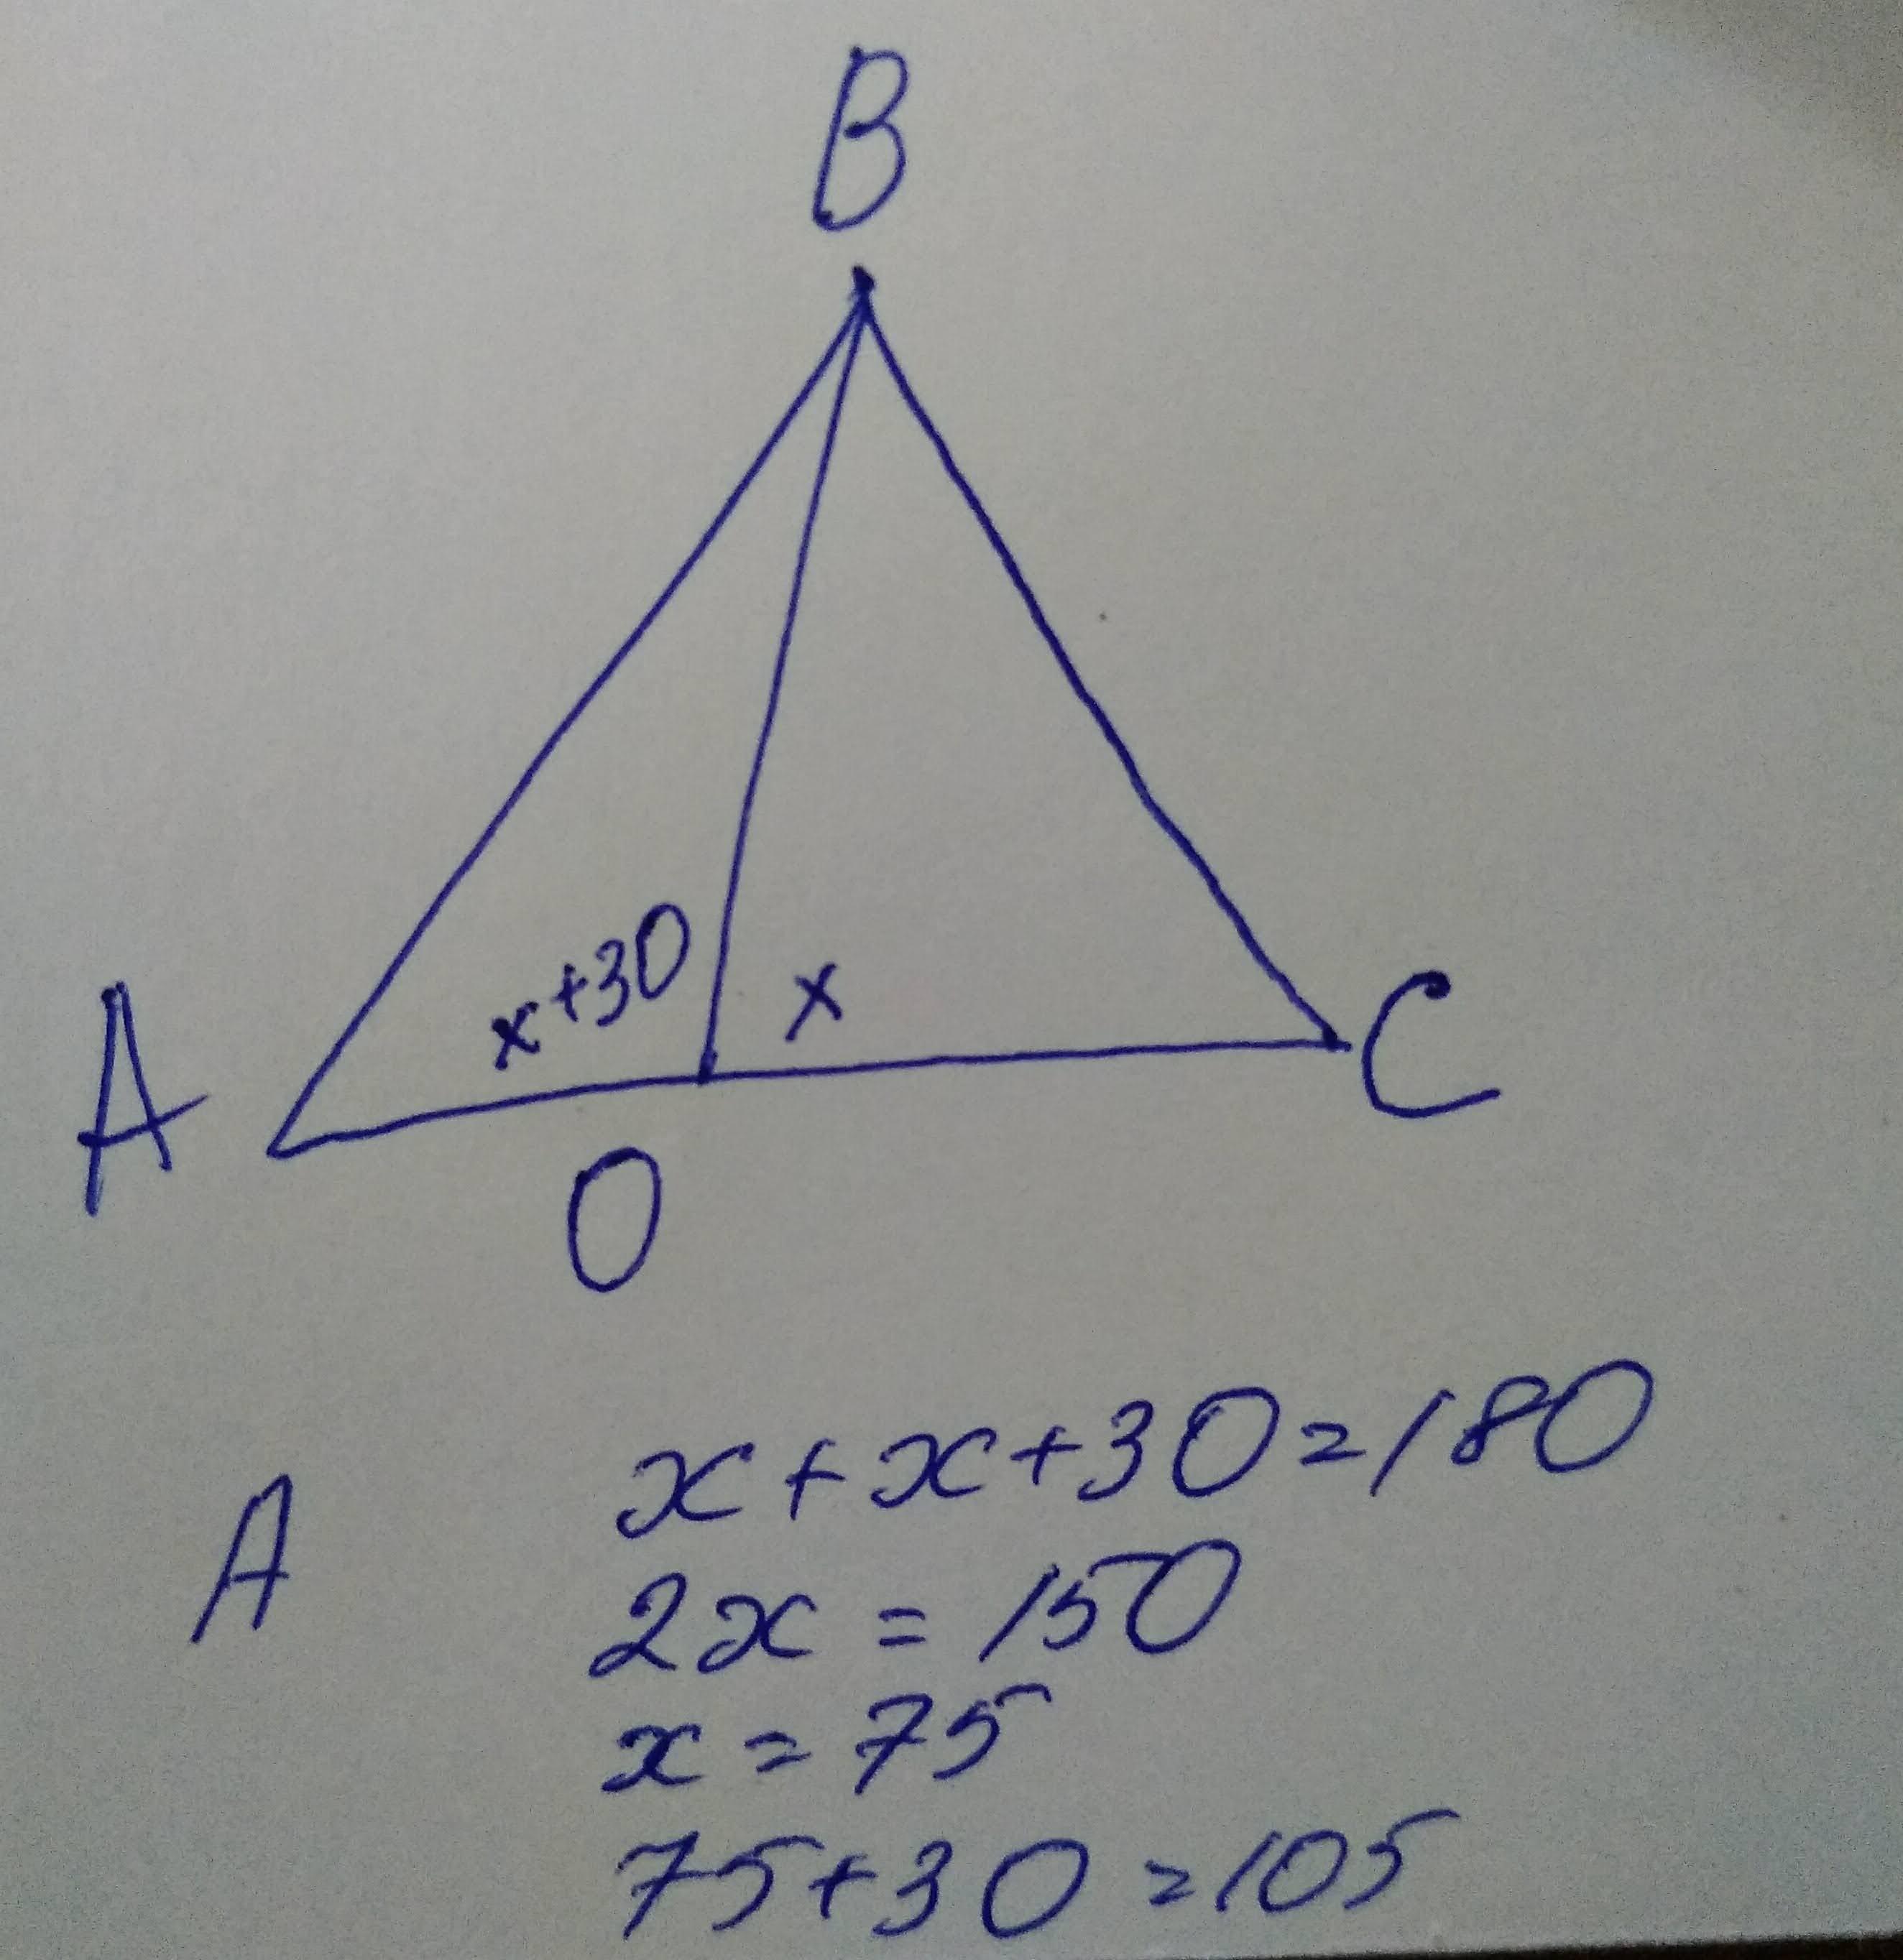 B
x+30
x
A
C
O
x+x+30=180
A
2x=150
x=75
75+30=105